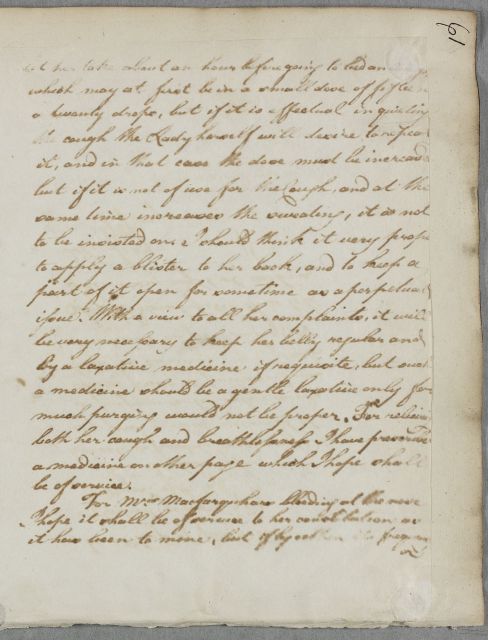 61
let her take about an hour before going to bed an
which may at first be in a small dose of fifteen
a twenty drops, but if it is effectual in quieting
the cough the Lady herself will desire to repeat
it, and in that case the dose must be increased
but if it is not of use for the Cough, and at the
same time increases the sweating, it is not
to be insisted on. I should think it very proper
to apply a blister to her back, and to keep a
part of it open for sometime as a perpetual
issue. With a view to all her complaints, it will
be very necessary to keep her belly regular and
by a laxative medicine if requisite, but such
a medicine should be a gentle laxative only for
much purging would not be proper. For relieving
both her cough and breathlessness I have prescribed
a medicine on other page which I hope shall
be of service.
For Mrs bleeding at the nose
I hope it shall be of service to her constitution as
it has been to mine, but if by its